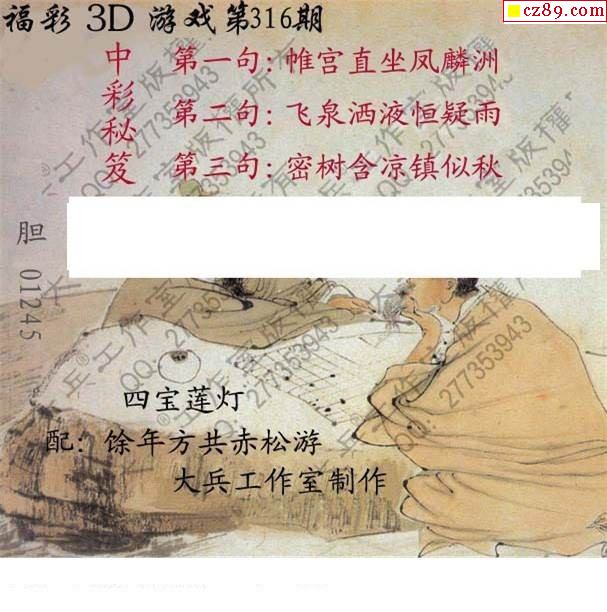 福彩 3D 游戏第316期
cz89.com
中彩秘笈
第一句：帷宫直坐凤麟洲
第二句：飞泉洒液恒疑雨
第三句：密树含凉镇似秋
胆 01245
四宝莲灯
配：馀年方共赤松游
大兵工作室制作
大兵®工作室版权所有
QQ:277353943